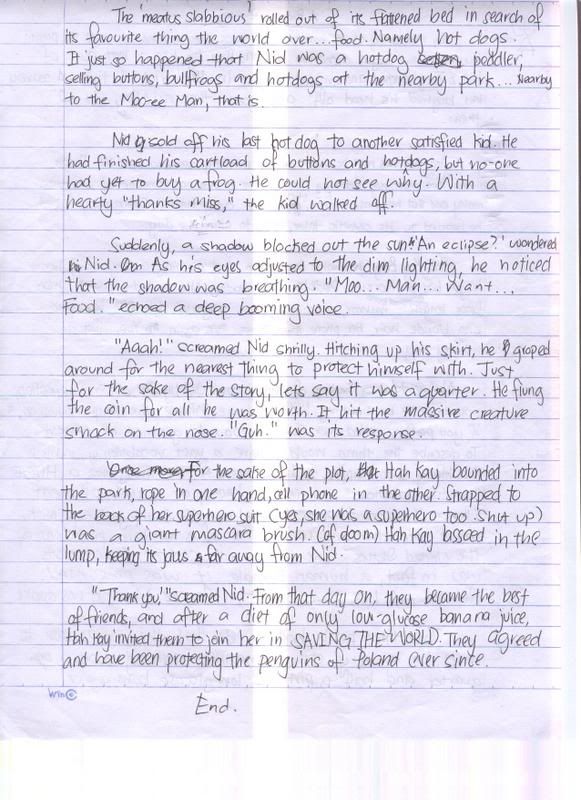 The 'meatus slabbious' rolled out of its flattened bed in search of
its favourite thing the world over... food. Namely hot dogs.
It just so happened that Nid was a hotdog peddler,
selling buttons, bullfrogs and hotdogs at the nearby park... Nearby
to the Moo-ee Man, that is.
Nid sold off his last hot dog to another satisfied kid. He
had finished his cartload of buttons and hotdogs, but no-one
had yet to buy a frog. He could not see why. With a
hearty "thanks miss," the kid walked off.
Suddenly, a shadow blocked out the sun. 'An eclipse?' wondered
Nid. As his eyes adjusted to the dim lighting, he noticed
that the shadow was breathing. "Moo... Man... Want...
Food." echoed a deep booming voice.
"Aaah!" screamed Nid shrilly. Hitching up his skirt, he groped
around for the nearest thing to protect himself with. Just
for the sake of the story, lets say it was a quarter. He flung
the coin for all he was worth. It hit the massive creature
smack on the nose. "Guh." was its response.
For the sake of the plot, Hah Kay bounded into
the park, rope in one hand, cell phone in the other. Strapped to
the back of her superhero suit (yes, she was a superhero too. Shut up)
was a giant mascara brush. (of doom) Hah Kay lassoed in the
lump, keeping its jaws far away from Nid.
"Thank you," screamed Nid. From that day on, they became the best
of friends, and after a diet of only low-glucose banana juice,
Hah Kay invited them to join her in SAVING THE WORLD. They agreed
and have been protecting the penguins of Poland ever since.
Win©
End.